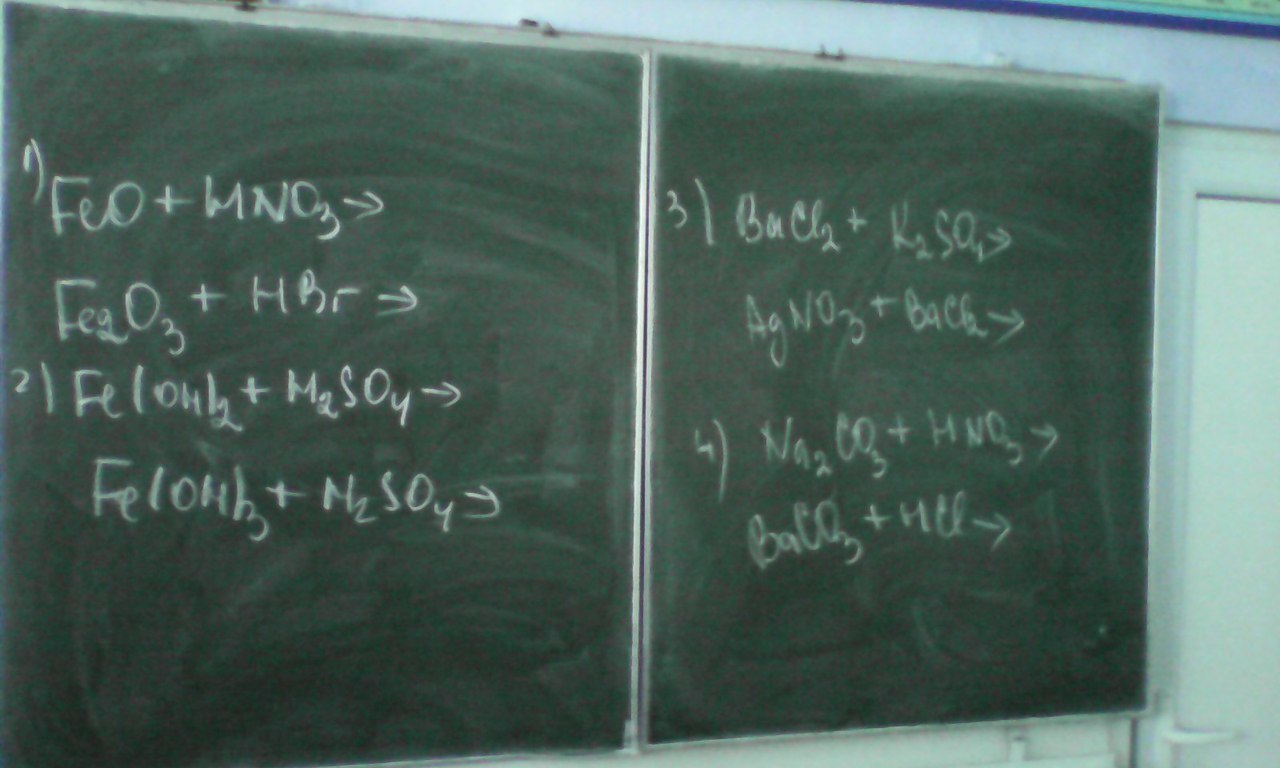 1) FeO + HNO₃ →
Fe₂O₃ + HBr →
2) Fe(OH)₂ + H₂SO₄ →
Fe(OH)₃ + H₂SO₄ →
3) BaCl₂ + K₂SO₄ →
AgNO₃ + BaCl₂ →
4) Na₂CO₃ + HNO₃ →
BaCO₃ + HCl →